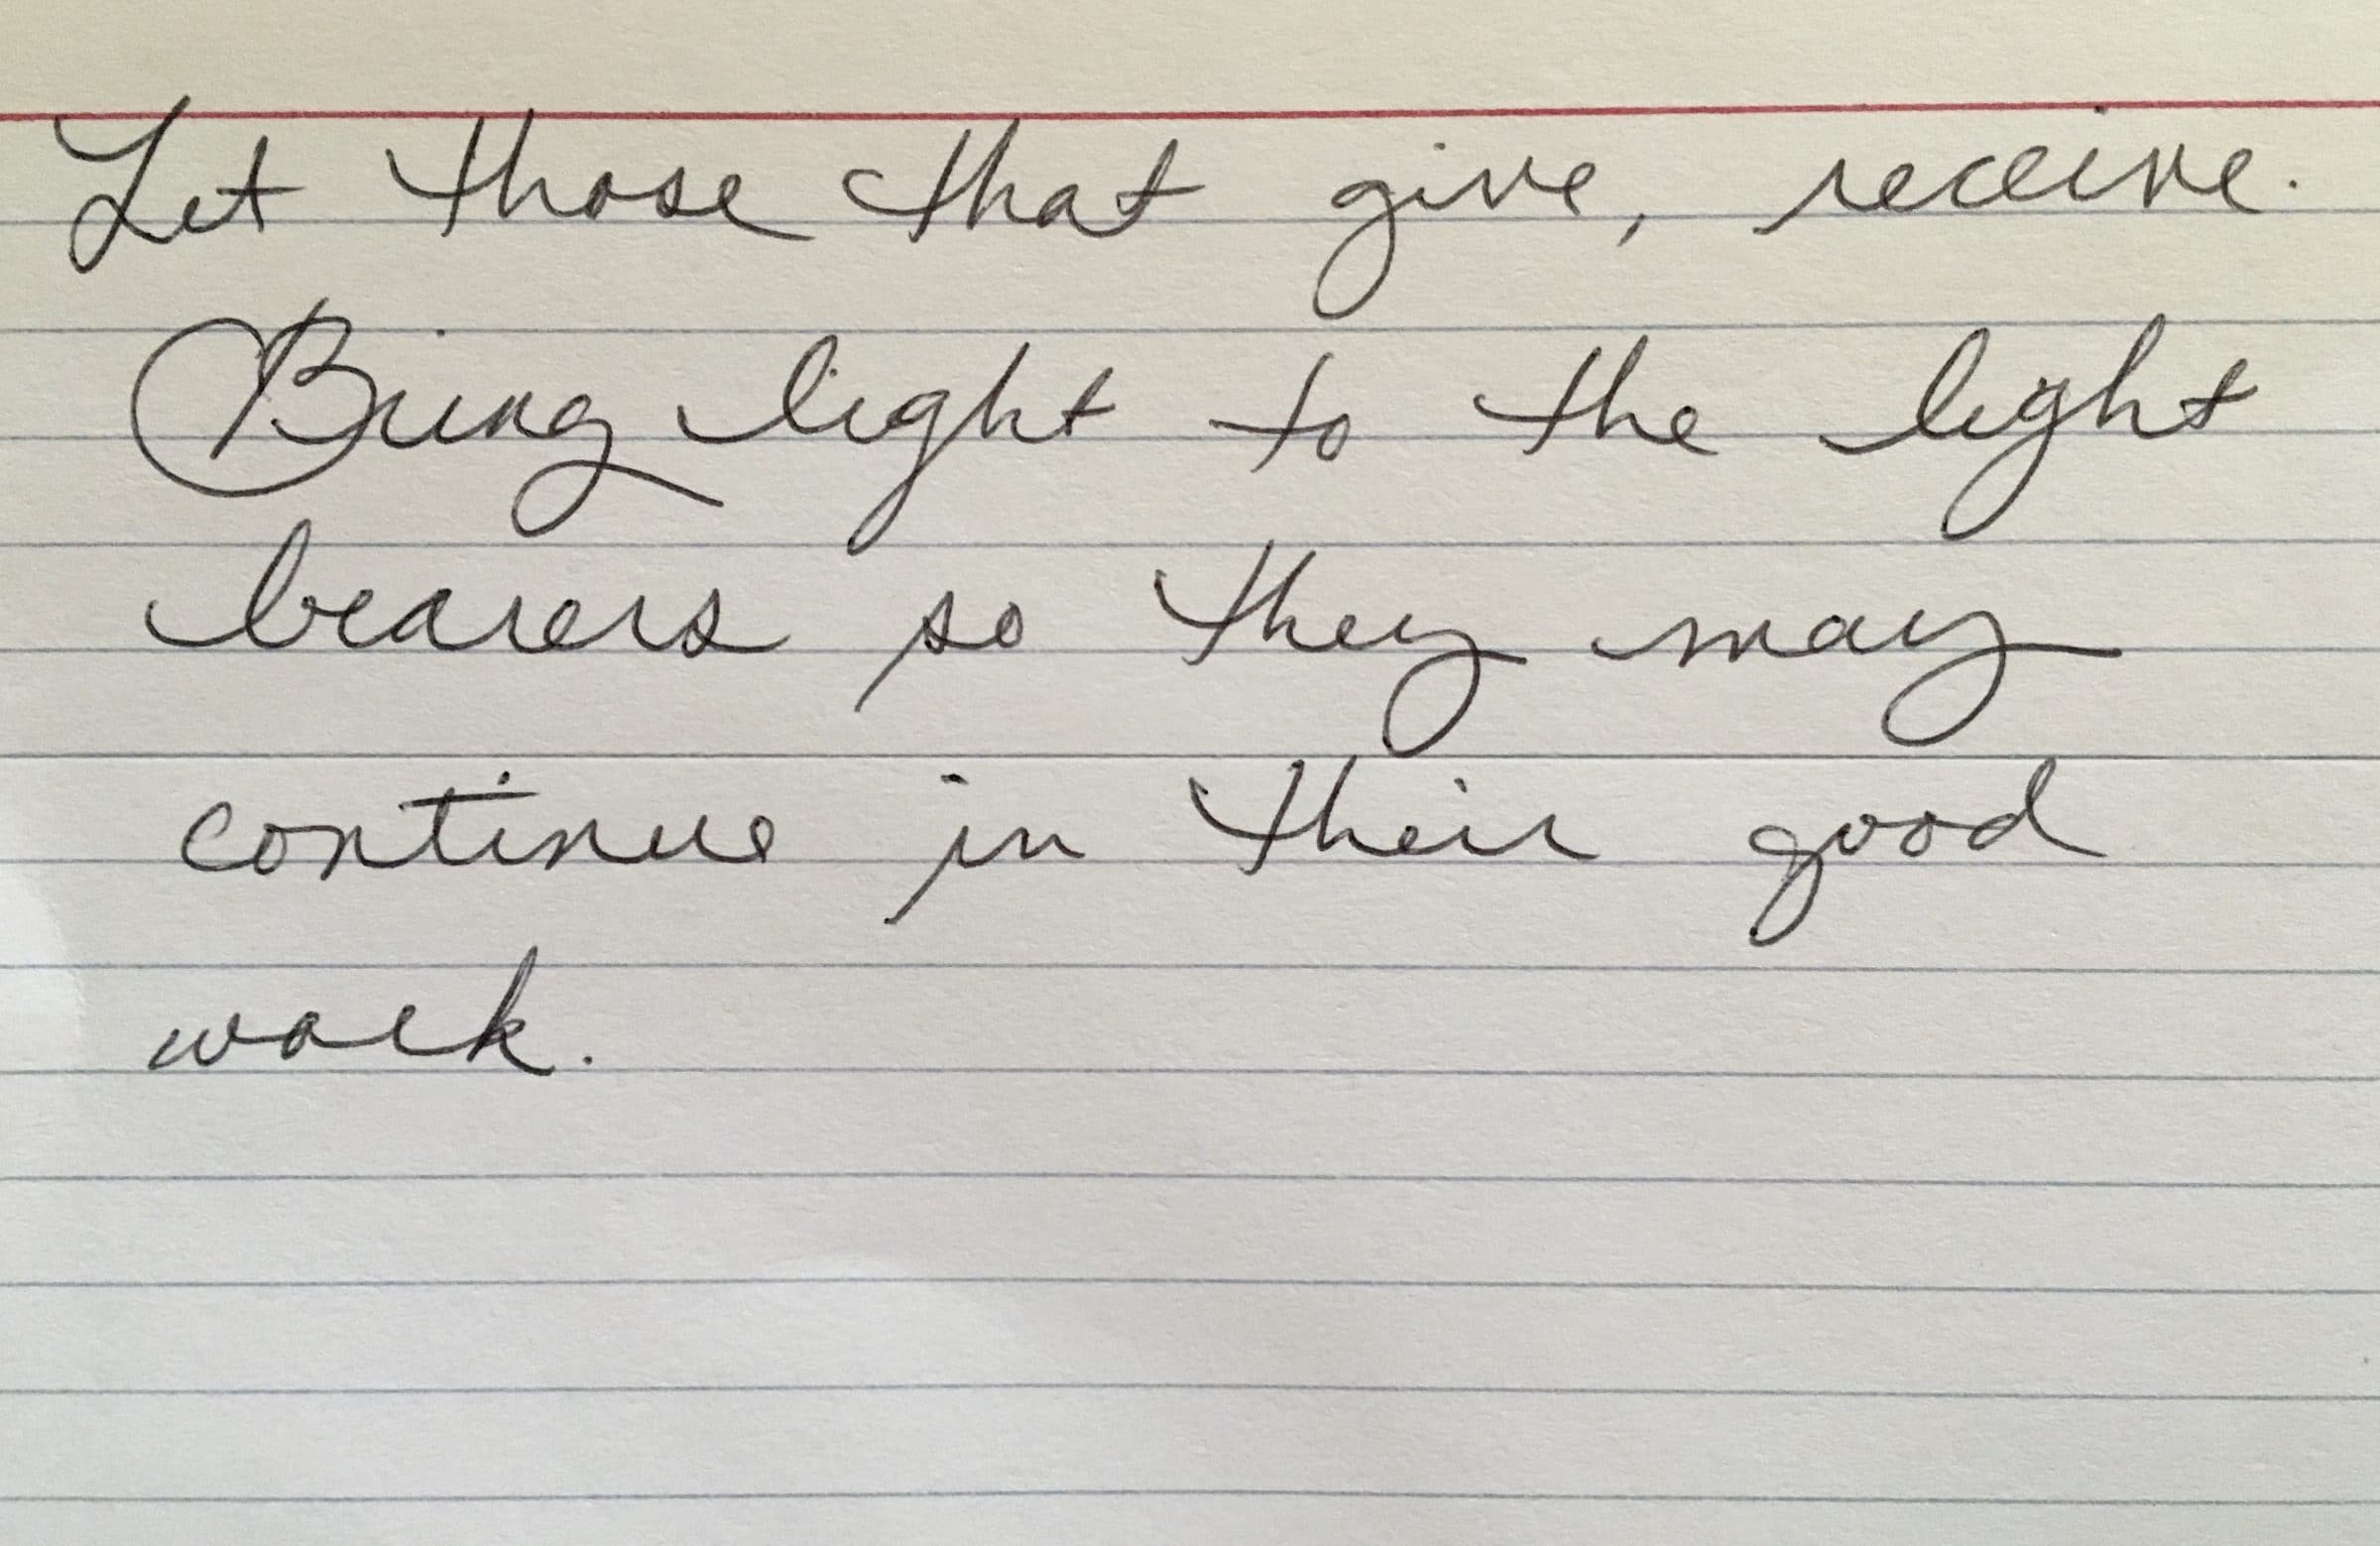 Let those that give, receive.
Bring light to the light
bearers so they may
continue in their good
work.